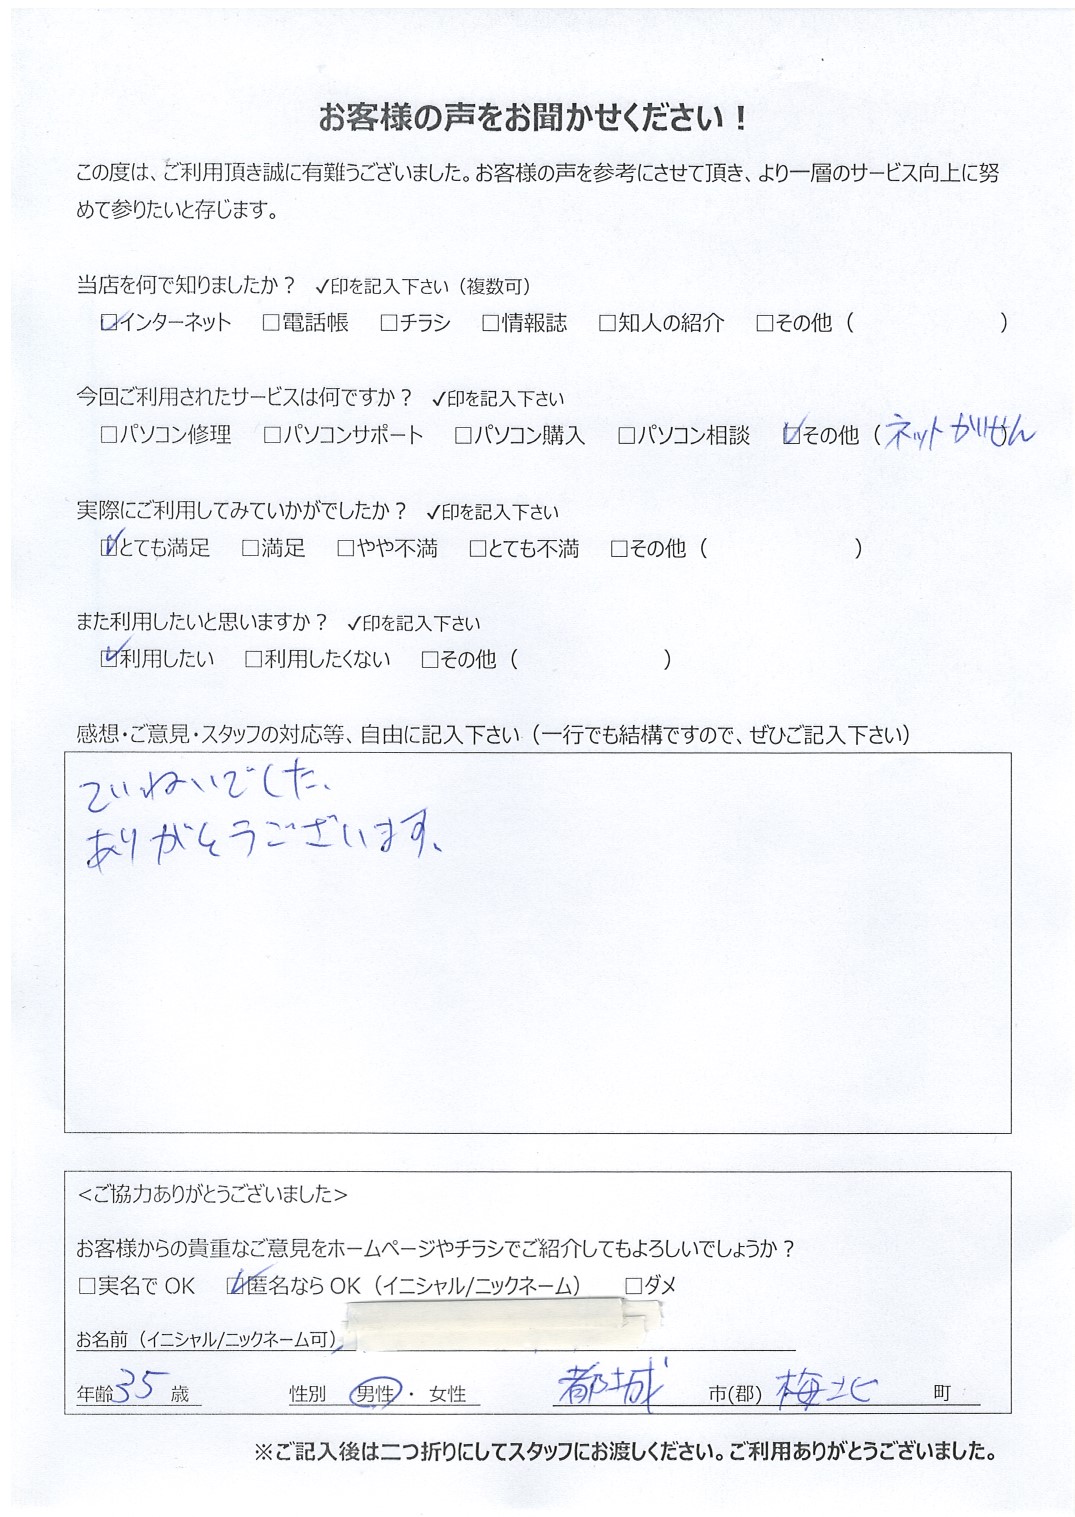 お客様の声をお聞かせください！
この度は、ご利用頂き誠に有難うございました。お客様の声を参考にさせて頂き、より一層のサービス向上に努
めて参りたいと存じます。
当店を何で知りましたか？ ✓印を記入下さい（複数可）
☑インターネット □電話帳 □チラシ □情報誌 □知人の紹介 □その他（ ）
今回ご利用されたサービスは何ですか？ ✓印を記入下さい
□パソコン修理 □パソコンサポート □パソコン購入 □パソコン相談 ☑その他（ネットかいせん）
実際にご利用してみていかがでしたか？ ✓印を記入下さい
☑とても満足 □満足 □やや不満 □とても不満 □その他（ ）
また利用したいと思いますか？ ✓印を記入下さい
☑利用したい □利用したくない □その他（ ）
感想・ご意見・スタッフの対応等、自由に記入下さい（一行でも結構ですので、ぜひご記入下さい）
ていねいでした、
ありがとうございます、
<ご協力ありがとうございました>
お客様からの貴重なご意見をホームページやチラシでご紹介してもよろしいでしょうか？
□実名で OK ☑匿名なら OK（イニシャル/ニックネーム） □ダメ
お名前（イニシャル/ニックネーム可）
年齢 35 歳 性別 男性 ・ 女性 都城 市(郡) 梅北 町
※ご記入後は二つ折りにしてスタッフにお渡しください。ご利用ありがとうございました。